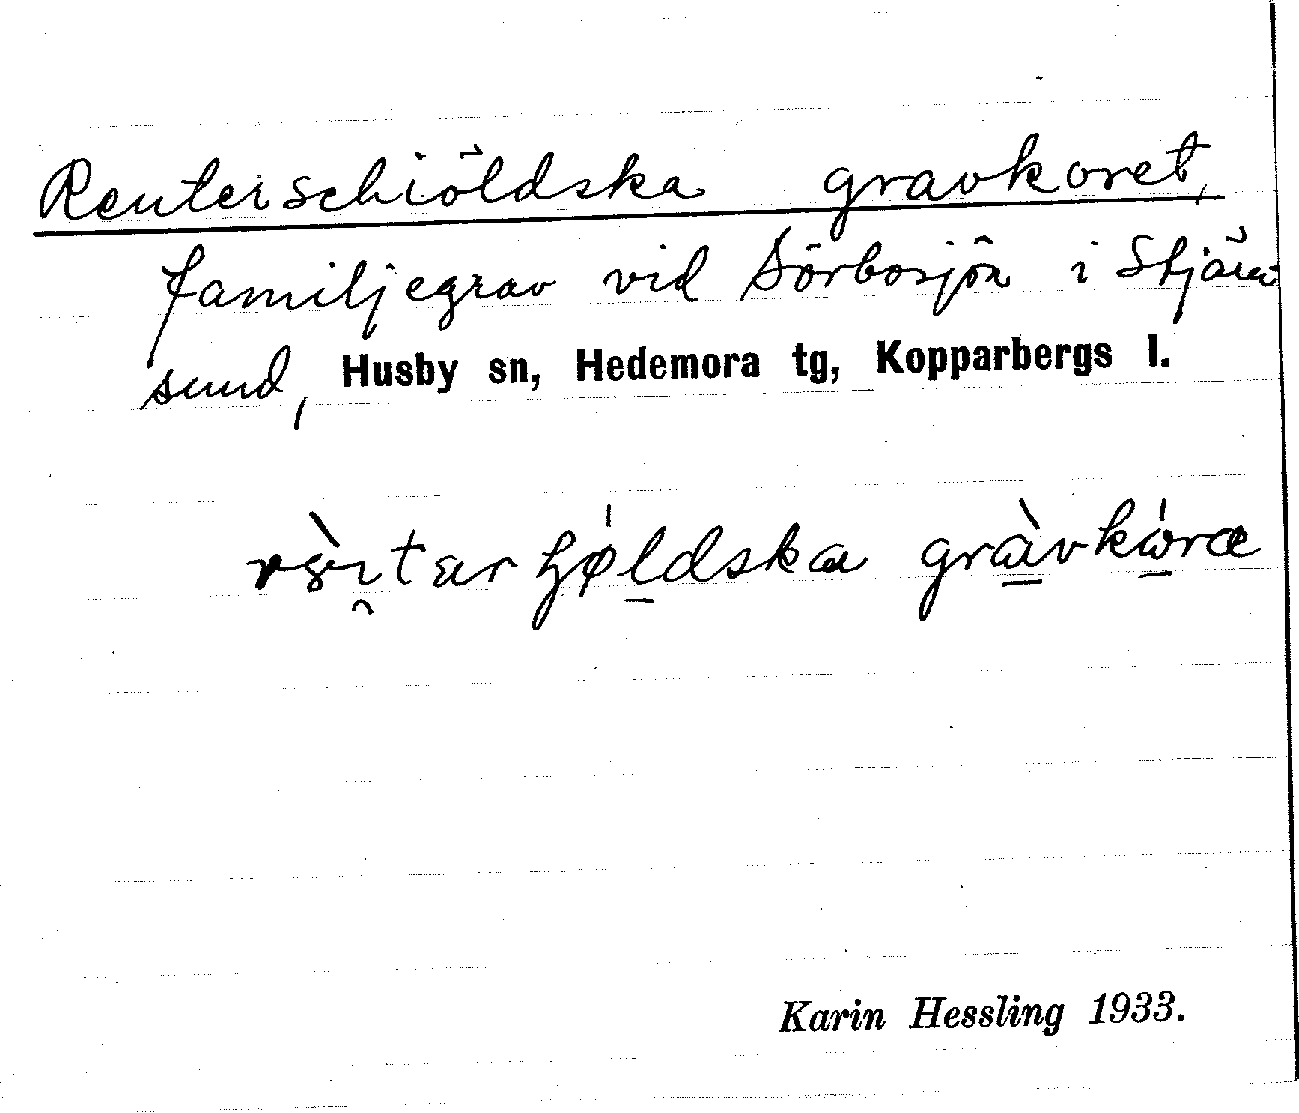 Reuterschiöldska gravkoret,
familjegrav vid Sörbosjön i Stjärn
sund, Husby sn, Hedemora tg, Kopparbergs l.
gràvkóræ
Karin Hessling 1933.